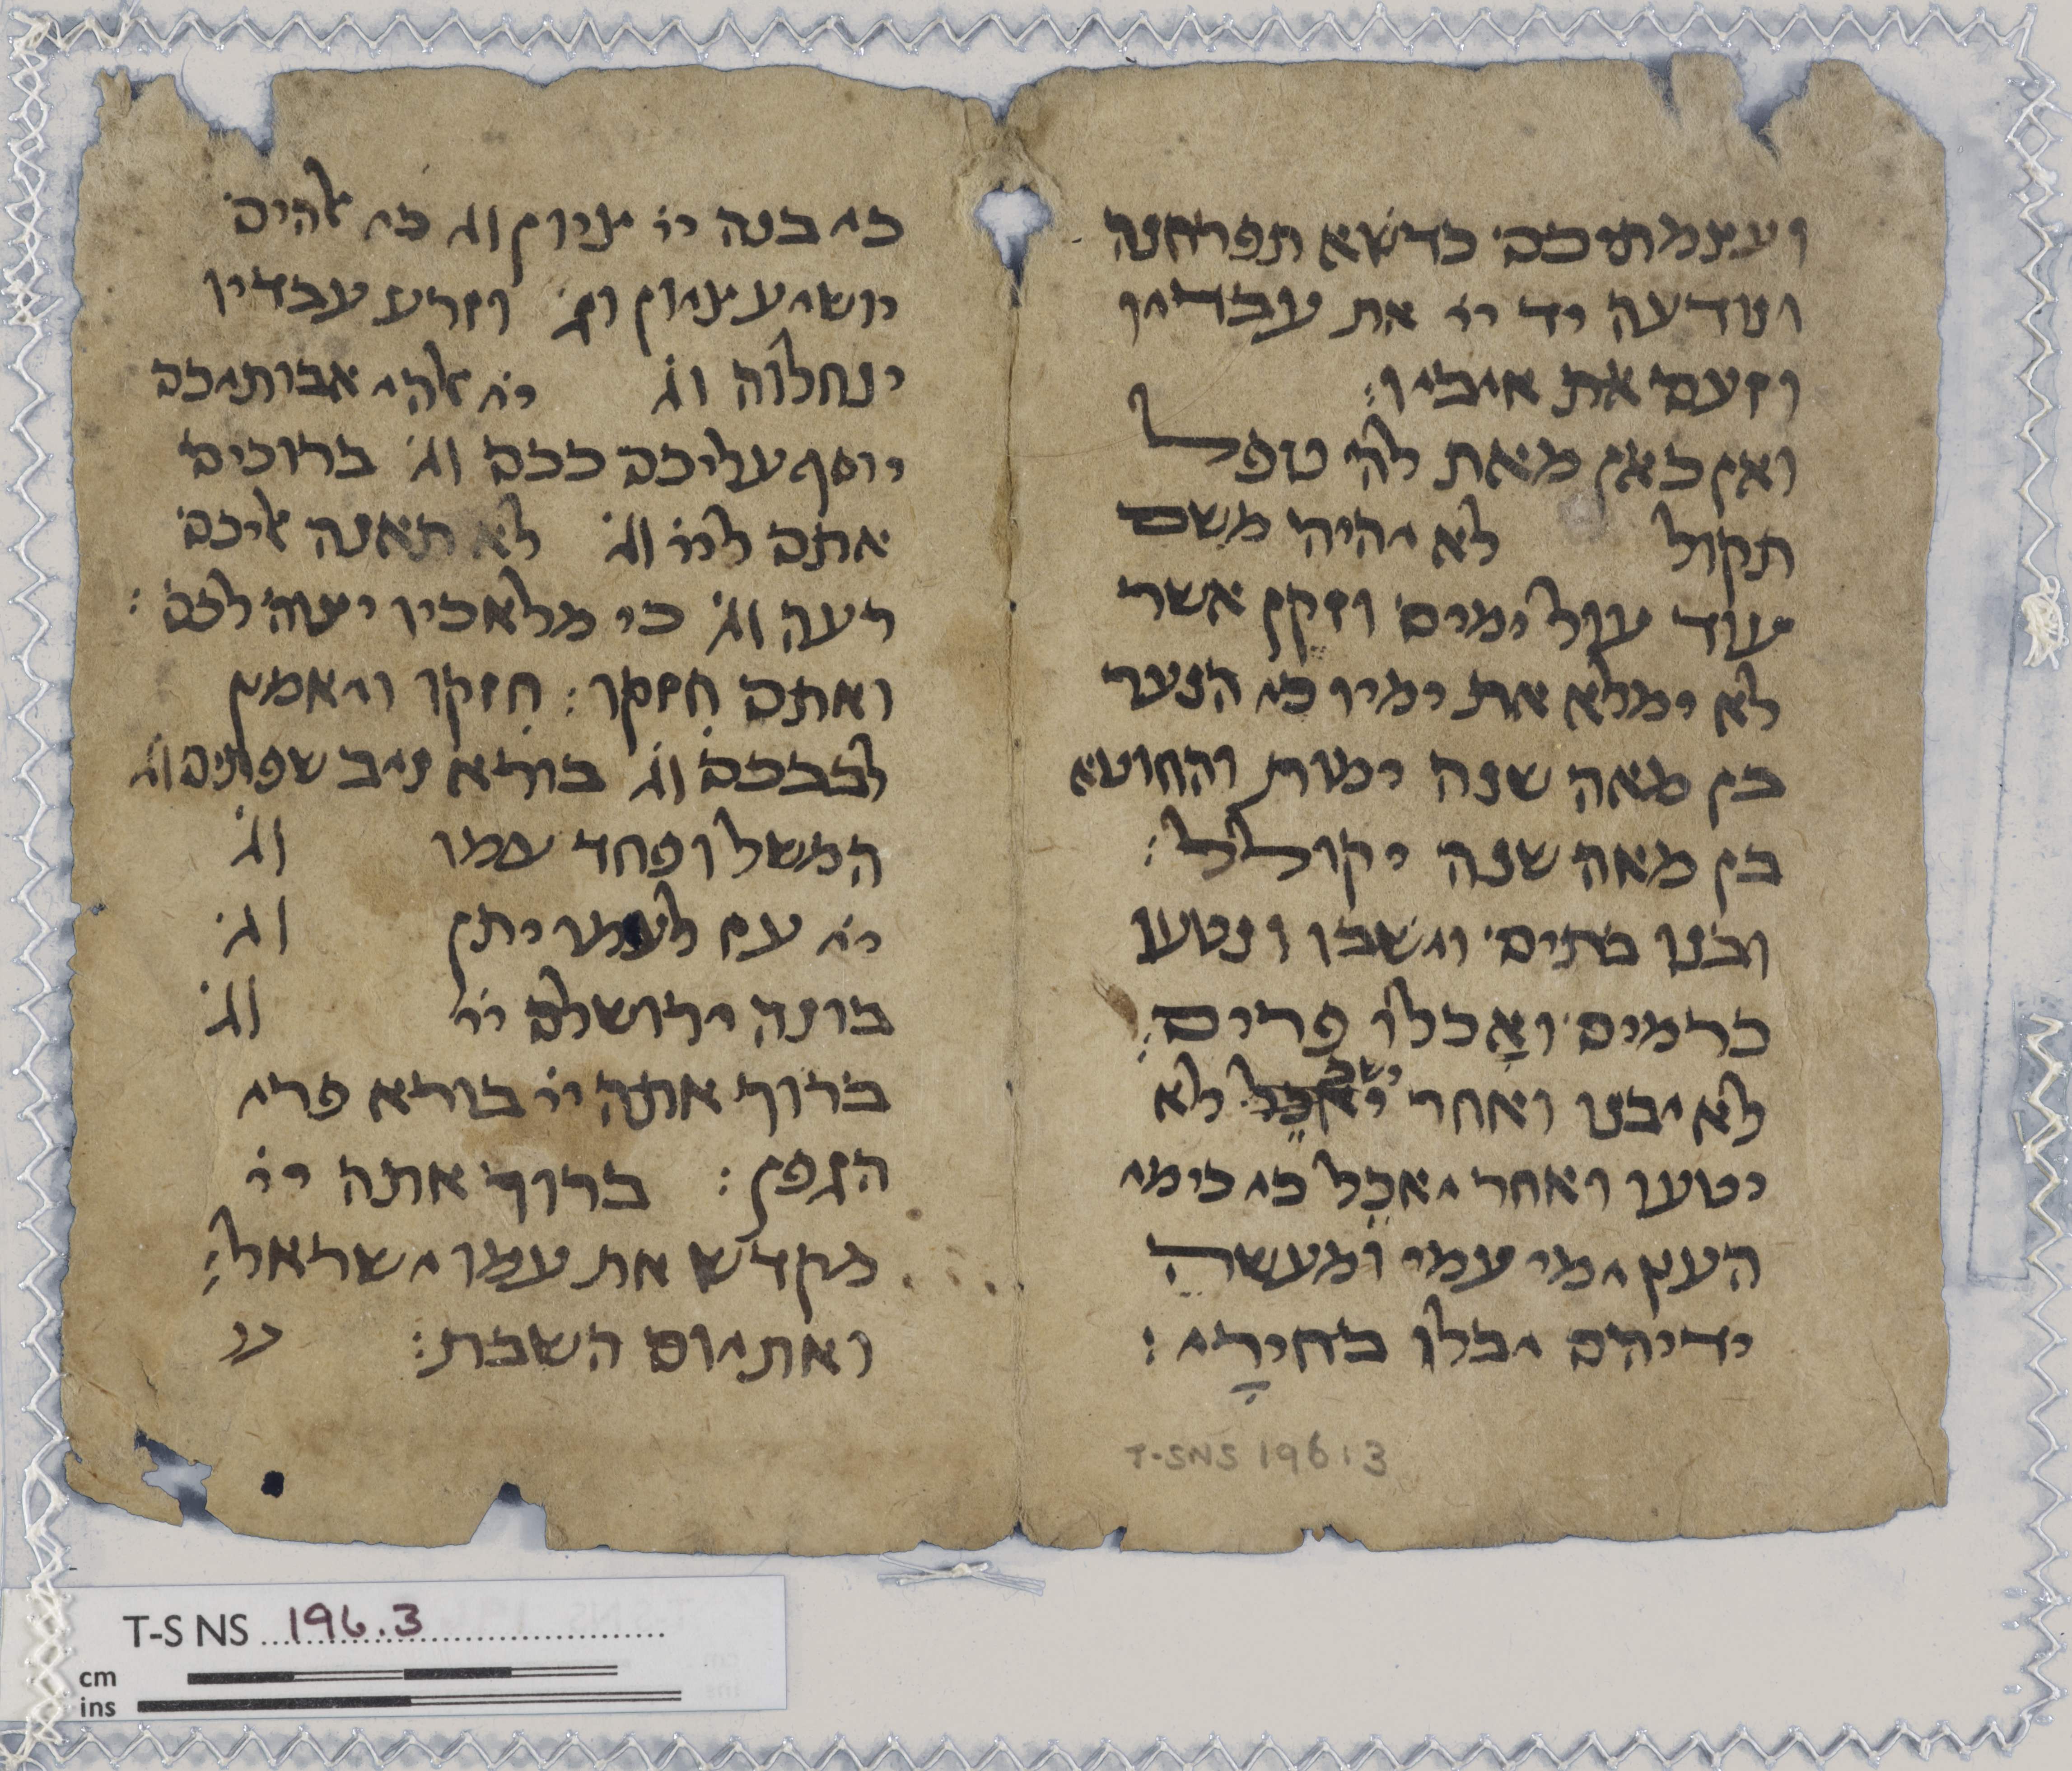 ועצמתיכם כדשא תפרחנה
ונודעה יד יי את עבדיו
וזעם את איביו:
ואן כאן מאת להי טפל
תקול לא יהיה משם
עוד עול ימים וזקן אשר
לא ימלא את ימיו כי הנער
בן מאה שנה ימות והחוטא
בן מאה שנה יקולל:
ובנו בתים וישבו ונטעו
כרמים ואָכלו פרים:
ישב
לא יבנו ואחר יאכֵל לא
יטעו ואחר יאכֵל כי כימי
העץ ימי עמי ומעשה
ידיהם יבלו בחירָי:
כי בנה יי ציון וג כי אלהים
יושיע ציון וג וזרע עבדיו
ינחלוה וג ייי אלהי אבותיכם
יוסף עליכם ככם וג ברוכים
אתם ליי וג לא תאנה אליכם
רעה וג כי מלאכיו יצוה לכם:
ואתם חזקו: חִזקו ויאמץ
לבבכם וג בורא ניב שפתים וג
המשל ופחד עמו וג
ייי עוז לעמו יתן וג
בונה ירושלם יי וג
ברוך אתה יי בורא פרי
הגפן: ברוך אתה יי
מקדש את עמו ישראל:
ואת יום השבת:
T-S NS 196.3
T-S NS 196.3
cm
ins